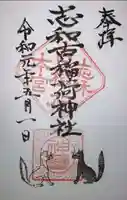 奉拝
志和古稲荷神社
令和元年五月一日